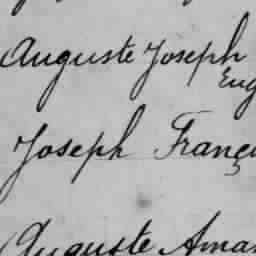 Auguste Joseph
Eug
Joseph Franç
Auguste Aman